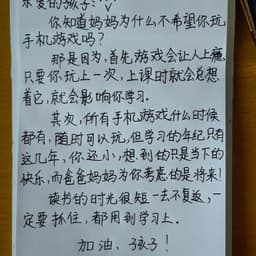 亲爱的孩子:
你知道妈妈为什么不希望你玩
手机游戏吗?
那是因为,首先游戏会让人上瘾,
只要你玩上一次,上课时就会总想
着它,就会影响你学习。
其次,所有手机游戏什么时候
都有,随时可以玩,但学习的年纪只有
这几年,你还小,想到的只是当下的
快乐,而爸爸妈妈为你考虑的是将来!
读书的时光很短一去不复返,一
定要抓住,都用到学习上。
加油、孩子!